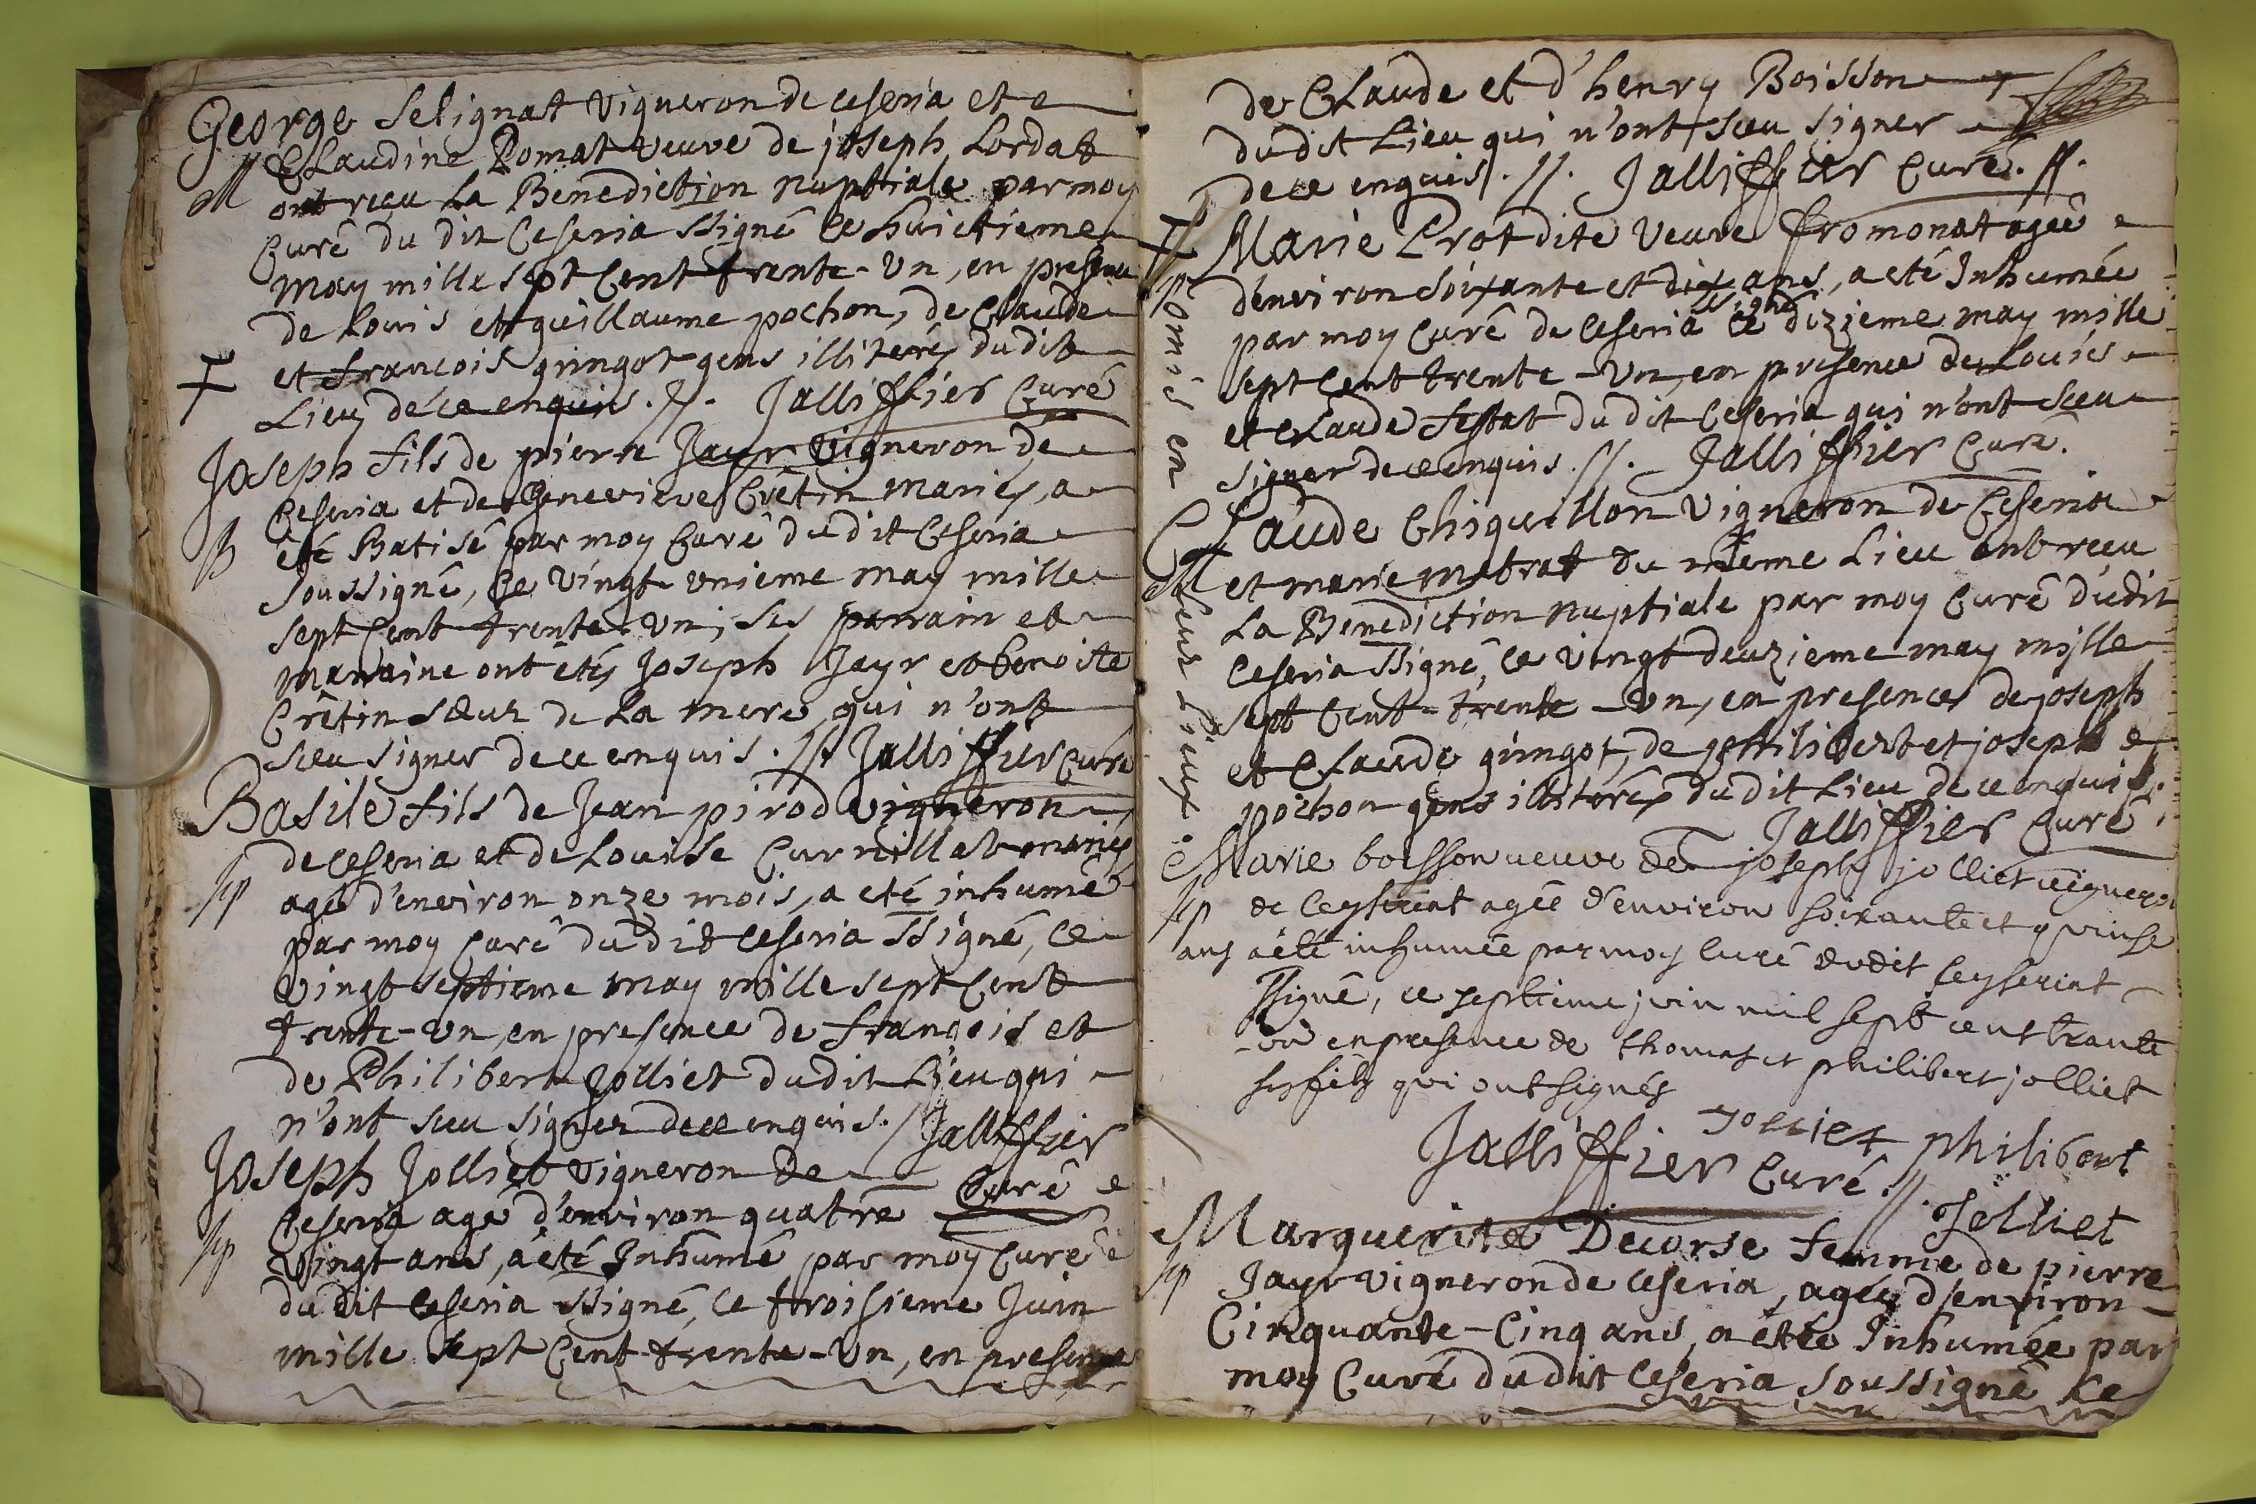 George Selignat vigneron de ceseria et
M Claudine Pomat veuve de joseph Lordat
ont rceu La Benediction nuptiale par moy
Curé du dit Ceseria ssigné ce huictieme
may mille sept Cent trente-un, en presence
de Louis et guillaume pochon, de Claude
et francois gringot gens illiterés dudit
Lieu de ce enquis. //. Jalliffier Curé
Joseph fils de pierre Jayr vigneron de
Ceseria et de Genevieve Crêtin mariés, a
B été Batisé par moy Curé du dit Ceseria
soussigné, ce vingt-unieme may mille
sept Cent trente-un; ses parrain et
marraine ont étés Joseph Jayr et benoite
Crêtin sœur de La mere, qui n'ont
sceu signer de ce enquis. //. Jalliffier Curé
Basile fils de Jean pirod vigneron
de Ceseria et de Louise Curnillat mariés
Sp agé d'environ onze mois, a eté inhumé
par moy Curé du dit Ceseria ssigné, ce
vingt septieme may mille sept Cent
trente-un, en presence de francois et
de Philibert Jolliet du dit Lieu qui
n'ont sceu signer de ce enquis. / Jalliffier
Joseph Jolliet vigneron de Curé
Ceseria agé d'environ quatre
Sp vingt ans, a été Inhumé par moy Curé
du dit Ceseria ssigné, ce troisieme Juin
mille sept Cent trente-un, en presence
de Claude et d'henry Boisson
du dit Lieu qui n'ont sceu signer
de ce enquis. //. Jalliffier Curé. //.
Marie Prot dite veuve fromonat agée
d'environ soixante et dix ans, a eté Inhumée
ssigné
par moy Curé de Ceseria ce dizieme may mille
sept Cent trente-un, en presence de Louis
et Claude festat du dit Ceseria qui n'ont sceu
signer de ce enquis. //. Jalliffier Curé.
omis en leur Lieux.
Claude Chiquillon vigneron de Ceseria
M et marie metrat du même Lieu ont rceu
La Benediction nuptiale par moy Curé dudit
Ceseria ssigné, ce vingt deuzieme may mille
sept Cent-trente-un, en presence de joseph
et Claude gringot, de philibert et joseph
pochon gens illiterés du dit Lieu de ce enquis.
Jalliffier Curé
Marie boisson veuve de joseph jolliet vigneron
Sp de Ceyseriat agée d'environ soixante et quinse
ans a été inhumée par moy Curé dudit Ceyseriat
ssigné, ce septieme juin mil sept cent trante
-un en presence de thomas et philibert jolliet
ses fils qui ont signés
Jolliet philibert
Jalliffier Curé. //. Jolliet
Marguerite Decorse femme de pierre
Sp Jayr vigneron de Ceseria, agée d'environ
Cinquante-Cinq ans, a étée Inhumée par
moy Curé du dit Ceseria, soussigné Le